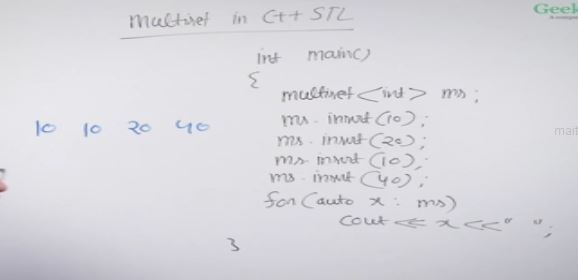 Multiset in C++ STL
Geek
int main()
{
multiset<int> ms;
ms.insert(10);
ms.insert(20);
10 10 20 40
ms.insert(10);
ms.insert(40);
for(auto x : ms)
cout << x << " ";
}